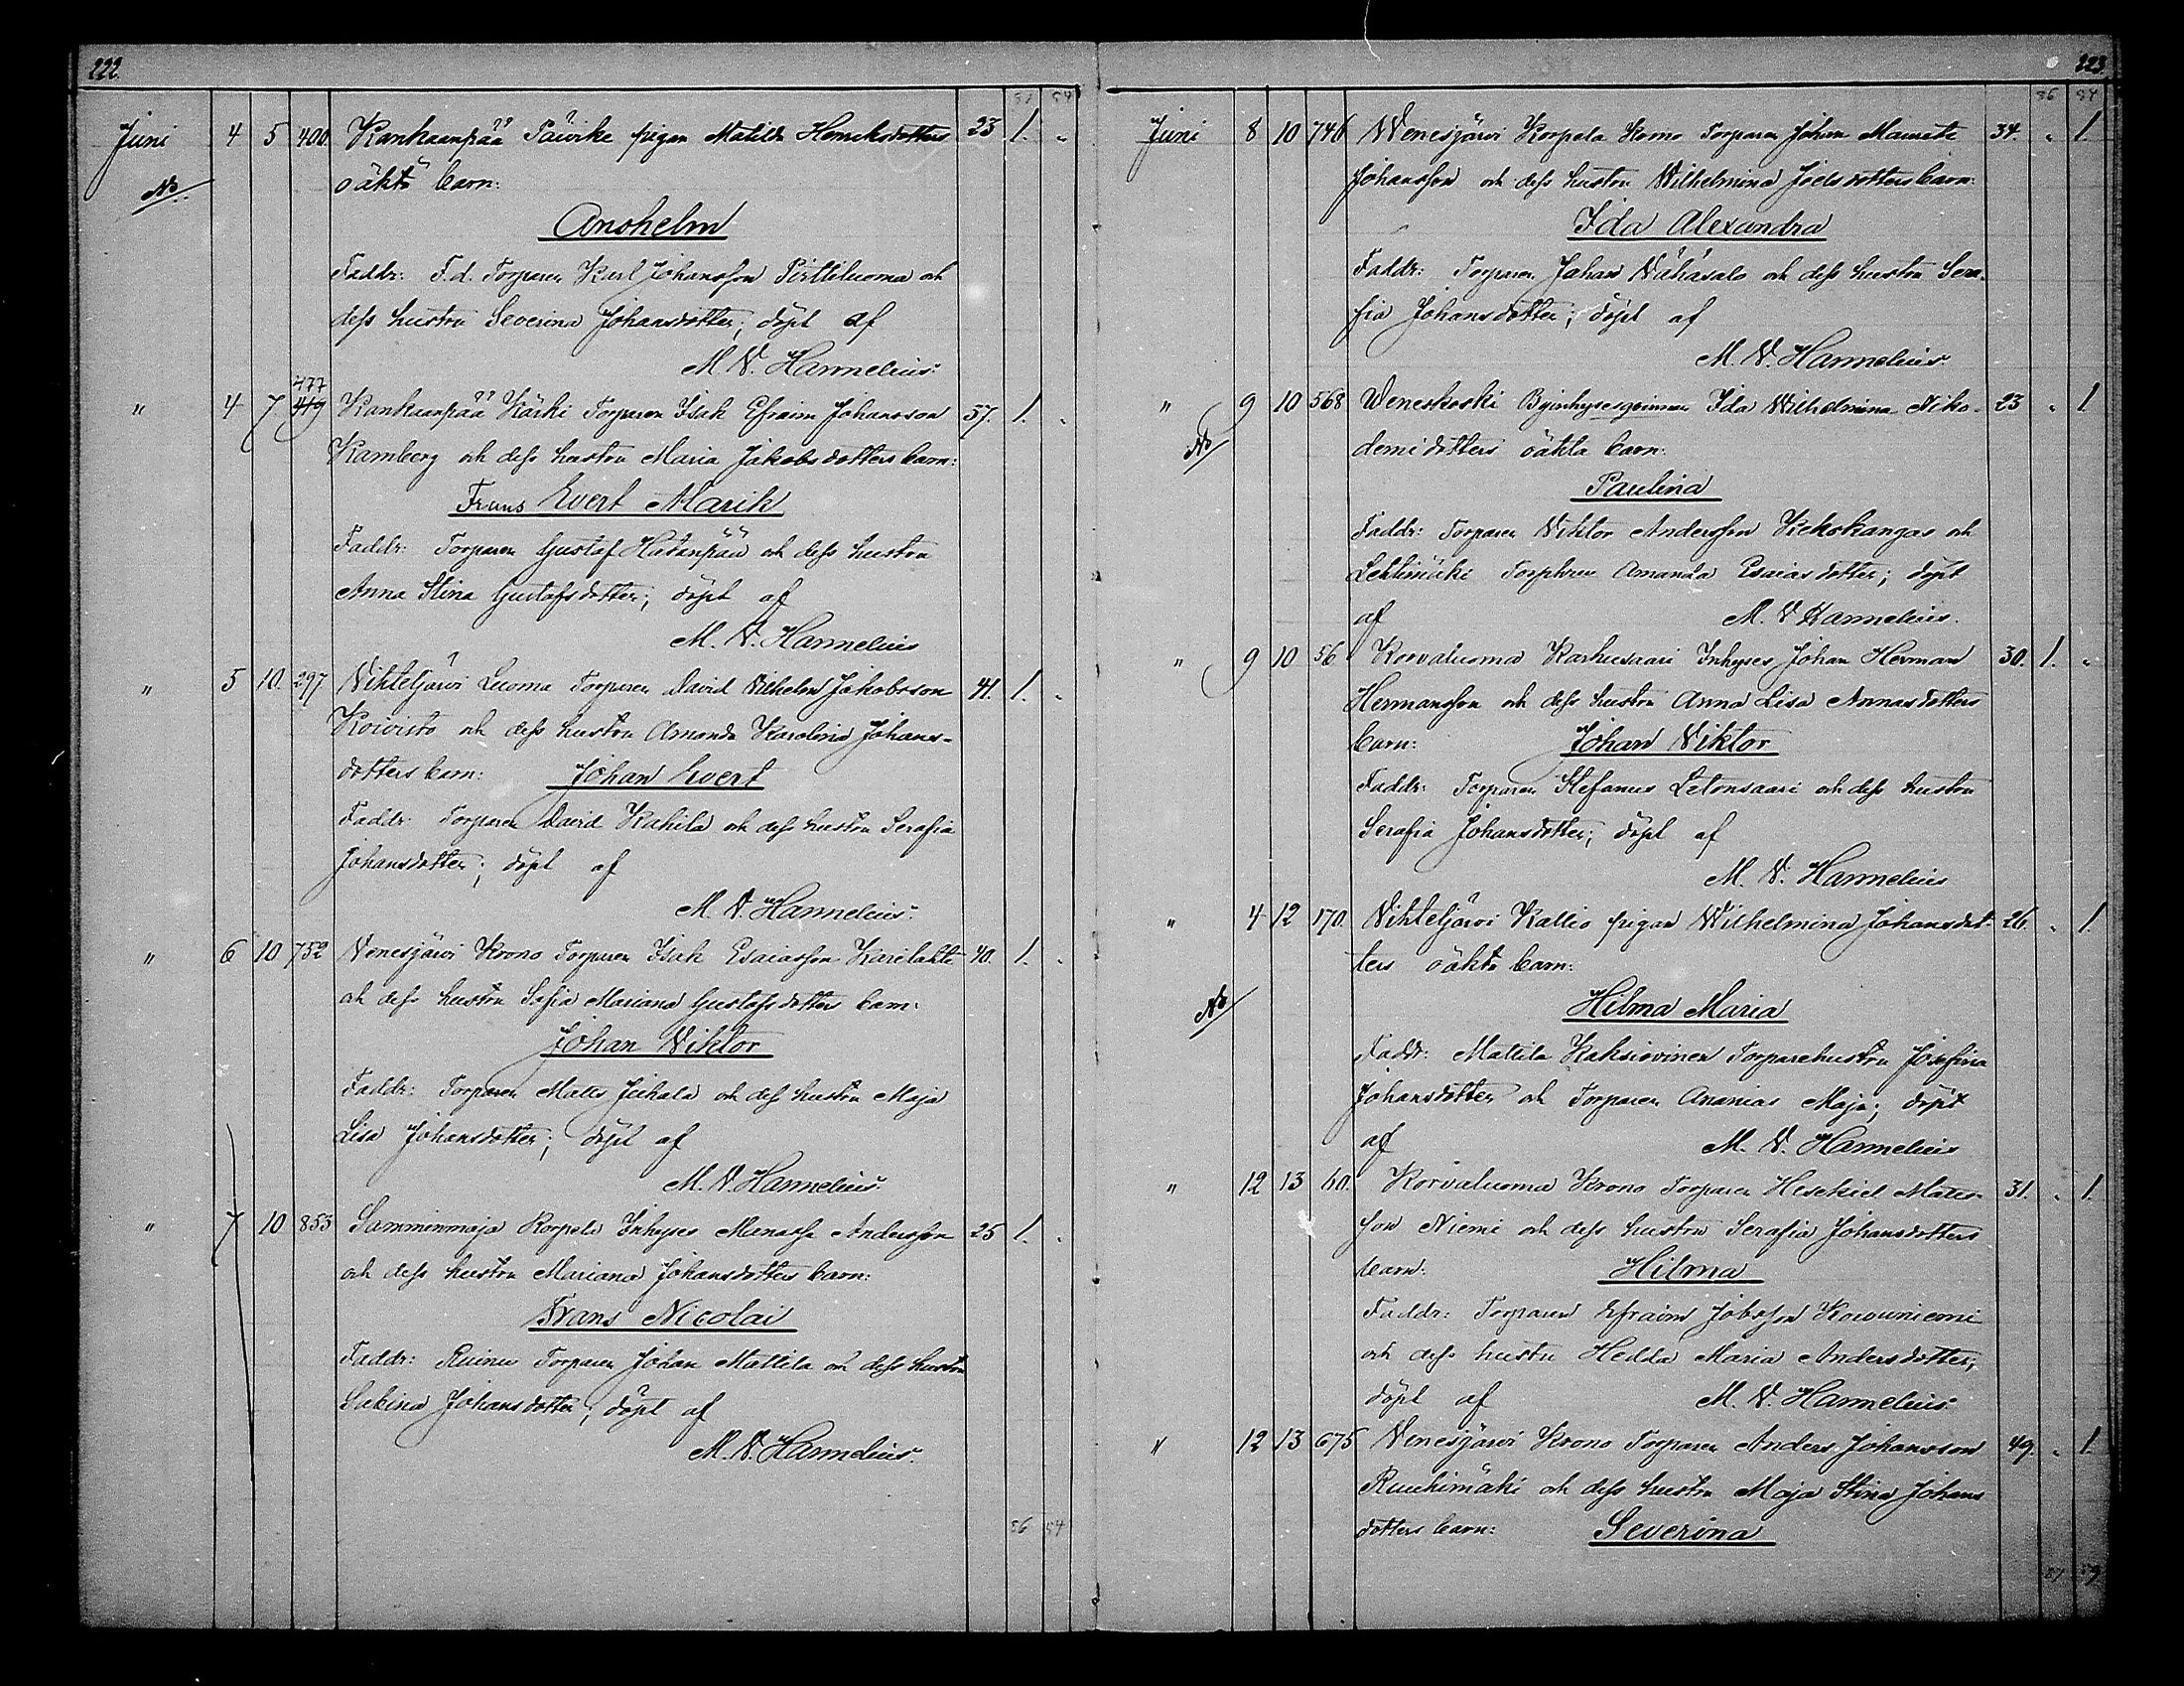 222.
51 54
Juni 4 5 400. Kankaanpää Päivike pigan Matilda Henriksdotters 23 1. "
No oäkta barn:
Anshelm
Faddr: F.d. Torparen Karl Johansson Pirttiluoma och
dess hustru Severina Johansdotter; döpt af
M. V. Hannelius.
477
" 4 7 419 Kankaanpää Kärki Torparen Isak Efraim Johansson 37. 1. "
Ramberg och dess hustru Maria Jakobsdotters barn:
Frans Evert Marik
Faddr: Torparen Gustaf Hatanpää och dess hustru
Anna Stina Gustafsdotter; döpt af
M. V. Hannelius
" 5 10. 297 Vihteljärvi Luoma Torparen David Vilhelm Jakobsson 41. 1. "
Koivisto och dess hustru Amanda Karolina Johans-
dotters barn: Johan Evert
Faddr: Torparen David Kahila och dess hustru Serafia
Johansdotter; döpt af
M. V. Hannelius.
" 6 10 752 Venesjärvi Krono Torparen Isak Esaiasson Karilahti 40. 1. "
och dess hustru Sofia Mariana Gustafsdotters barn:
Johan Viktor
Faddr: Torparen Matts Juhala och dess hustru Maja
Lisa Johansdotter; döpt af
M. V. Hannelius.
" 7 10 853 Samminmaja Korpela Inhyses Manasse Andersson 25 1. "
och dess hustru Mariana Johansdotters barn:
Frans Nicolai
Faddr: Torparen Johan Mattila och dess hustru
Sabina Johansdotter; döpt af
M. V. Hannelius.
56 54
223.
56 54
Juni 8 10 746 Wenesjärvi Korpela Torparen Johan
34. " 1.
Johansson och dess hustru Wilhelmina Joelsdotters barn:
Ida Alexandra
Faddr: Torparen Johan Vähäsalo och dess hustru Sera-
fia Johansdotter; döpt af
M. V. Hannelius.
" 9 10 568 Weneskoski Ida Wilhelmina Niko- 23 " 1.
No demidotters oäkta barn:
Paulina
Faddr: Torparen Viktor Andersson Kekokangas och
Lehtimäki Amanda Esaiasdotter; döpt
af M. V. Hannelius.
" 9 10 56 Korvaluoma Karhusaari Inhyses Johan Herman 30. 1. "
Hermansson och dess hustru Anna Lisa Annasdotters
barn: Johan Viktor
Faddr: Torparen Stefanus Letonsaari och dess hustru
Serafia Johansdotter; döpt af
M. V. Hannelius
" 4 12 170. Vihteljärvi Kallio pigan Wilhelmina Johansdot- 26. " 1.
ters oäkta barn:
No Hilma Maria
Faddr: Mattila Torparehustru Josefina
Johansdotter och Torparen Ananias Maja; döpt
af M. V. Hannelius
" 12 13 60. Korvaluoma Krono Torparen Hesekiel Mats- 31. " 1.
son Niemi och dess hustru Serafia Johansdotters
barn: Hilma
Faddr: Torparen Efraim Jobsson Kowuniemi
och dess hustru Hedda Maria Andersdotter;
döpt af M. V. Hannelius.
" 12 13 675 Venesjärvi Krono Torparen Anders Johansson 49. " 1.
Ruuhimäki och dess hustru Maja Stina Johans
dotters barn: Severina
57 59